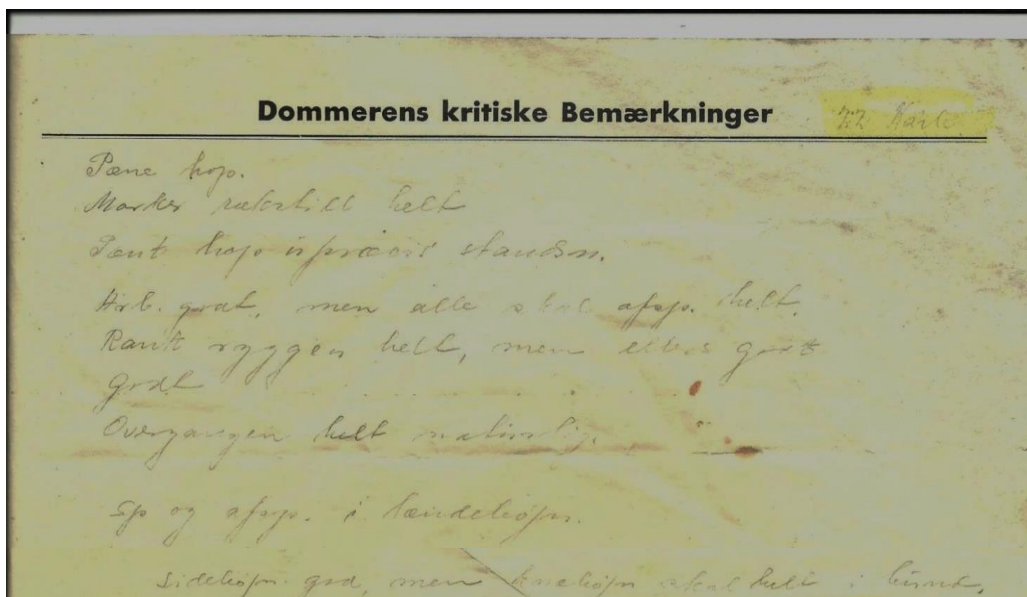 Dommerens kritiske Bemærkninger
Pæne hop.
Marker helt
Pænt hop
Arb. godt, men alle skal afsp. helt.
Rank ryggen helt, men ellers godt
Godt
Overgangen helt naturlig.
Sp og afsp. i lændebøjn.
Sidebøjn. god, men knæbøjn skal helt i bund.